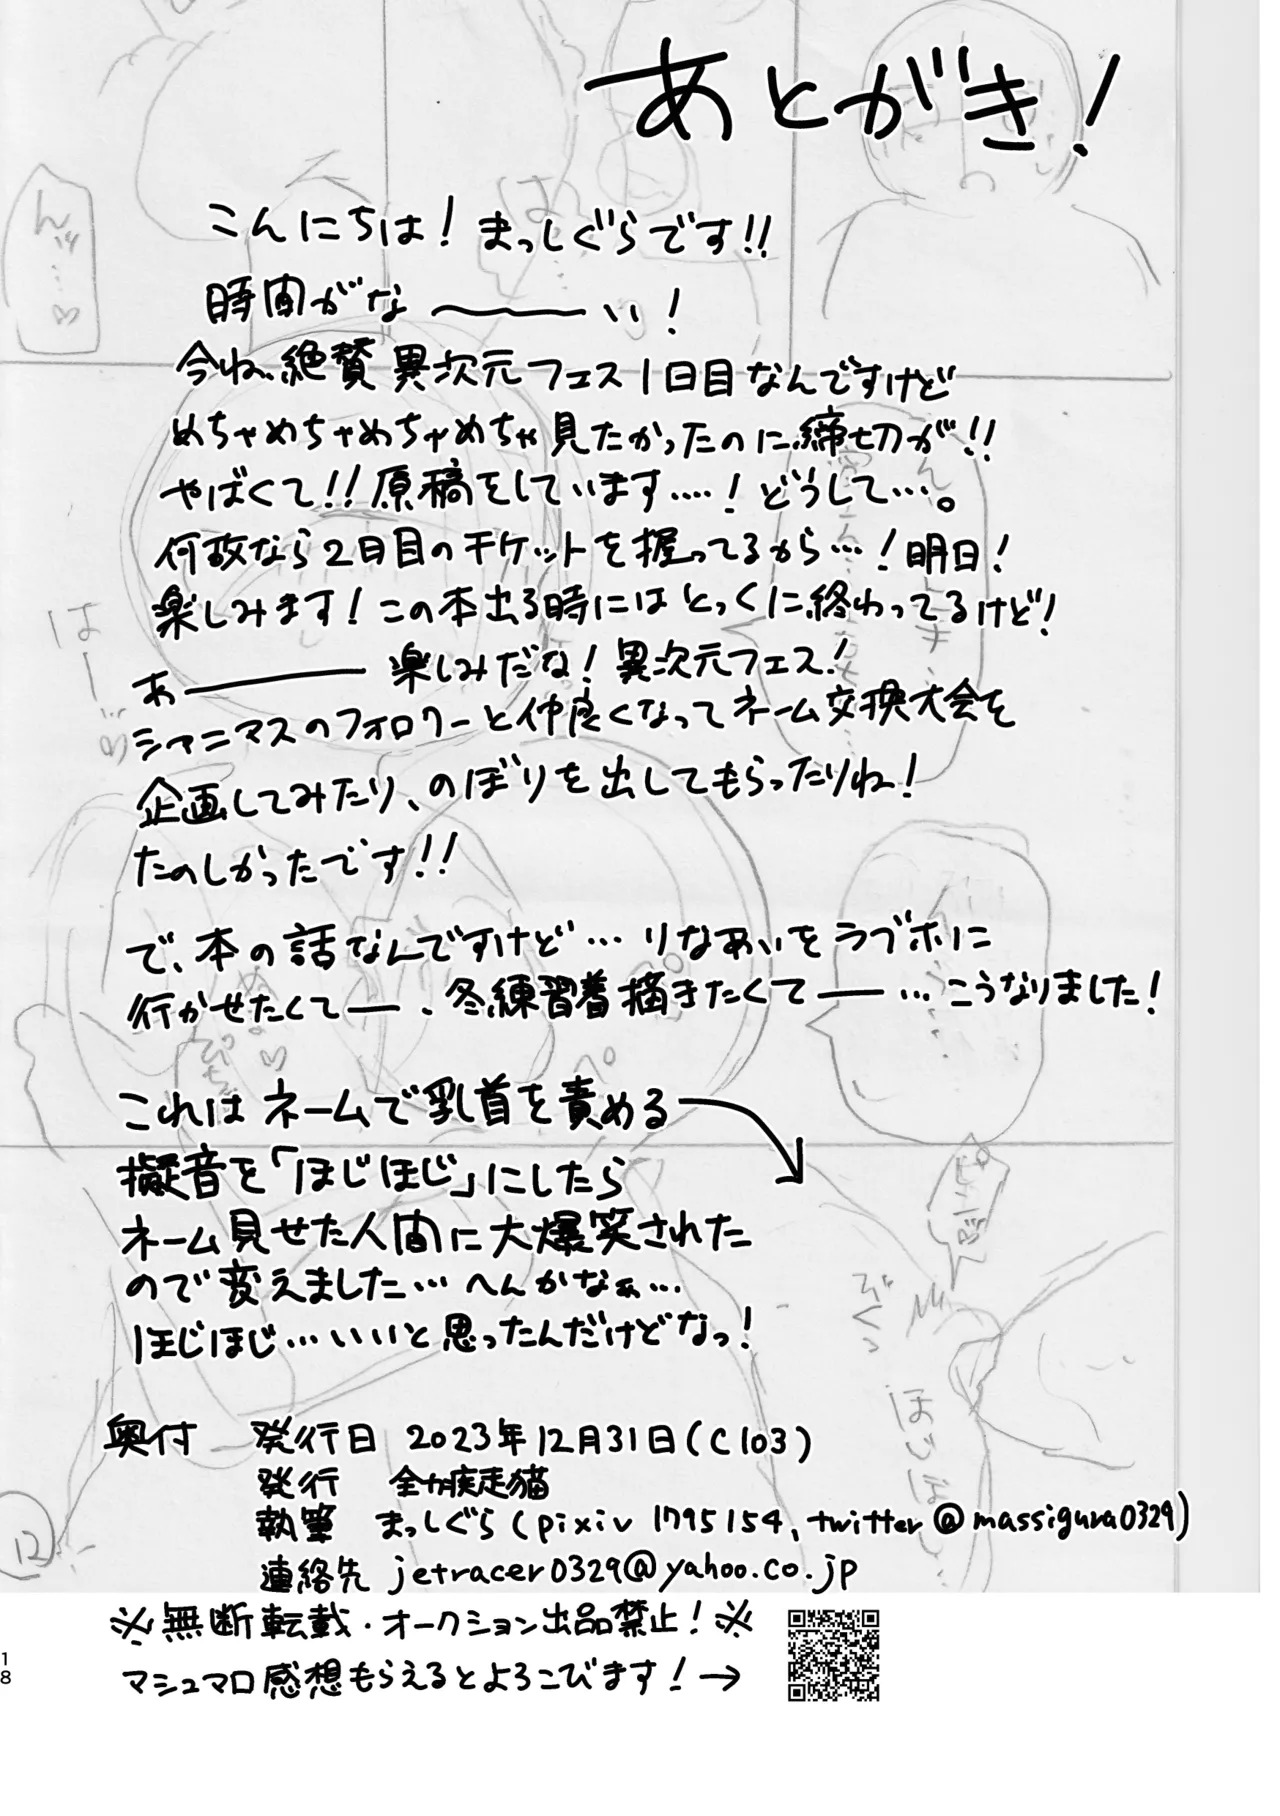 あとがき!
こんにちは! まっしぐらです!!
時間がな〜い!
今ね、絶賛異次元フェス1日目なんですけど
めちゃめちゃめちゃめちゃ見たかったのに締切が!!
やばくて!!原稿をしています….!どうして…。
何故なら2日目のチケットを握ってるから…!明日!
楽しみます!この本出る時にはとっくに終わってるけど!
あー楽しみだな!異次元フェス!
シャニマスのフォロワーと仲良くなってネーム交換大会を
企画してみたり、のぼりを出してもらったりね!
たのしかったです!!
で、本の話なんですけど…りなあいをラブホに
行かせたくてー、冬練習着描きたくてー…こうなりました!
これはネームで乳首を責める
擬音を「ほじほじ」にしたら
ネーム見せた人間に大爆笑された
ので変えました…へんかなぁ…
ほじほじ…いいと思ったんだけどなっ!
奥付 発行日 2023年12月31日(C103)
発行 全力疾走猫
執筆 まっしぐら(pixiv 1795154、twitter@massigura0329)
連絡先 jetracer0329@yahoo.co.jp
※無断転載・オークション出品禁止!※
マシュマロ感想もらえるとよろこびます!→
18
んッ…♡
は…
はー…♡
ぺろ
びくっ
ほじほじ
12